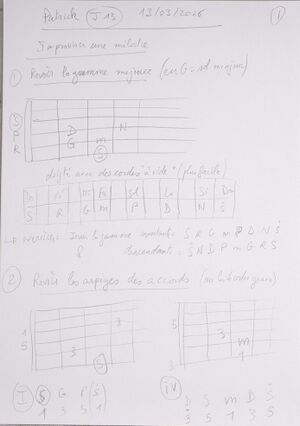 Patrick J13 13/03/2026 1
Improviser une mélodie
1 Revoir la gamme majeure (en G = sol majeur)
S D N
P G m
R S
doigté avec des cordes "à vide" (plus facile)
Do Ré Mi Fa Sol La Si Do
S R G m P D N Ṡ
Jouer la gamme montante : S R G m P D N Ṡ
& descendante : Ṡ N D P m G R S
2 Revoir les arpèges des accords
1 3
5 3 S
5 3 m
3 1
I S G P (Ṡ)
1 3 5 (1)
IV D S m D Ṡ
3 5 1 3 5